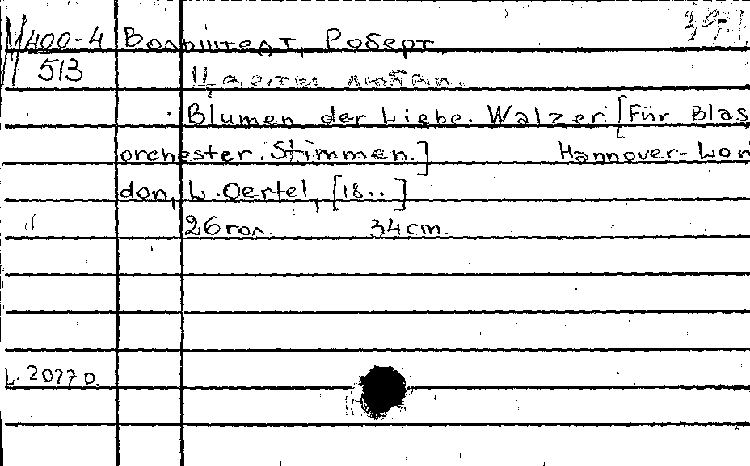 М400-4 Вольштедт, Роберт
513 Цветы любви.
Blumen der Liebe. Walzer. [Für Blas
orchester. Stimmen.] Hannover-Lon
don, L. Oertel, [18..]
26 гол. 34 cm.
L. 2077 D.